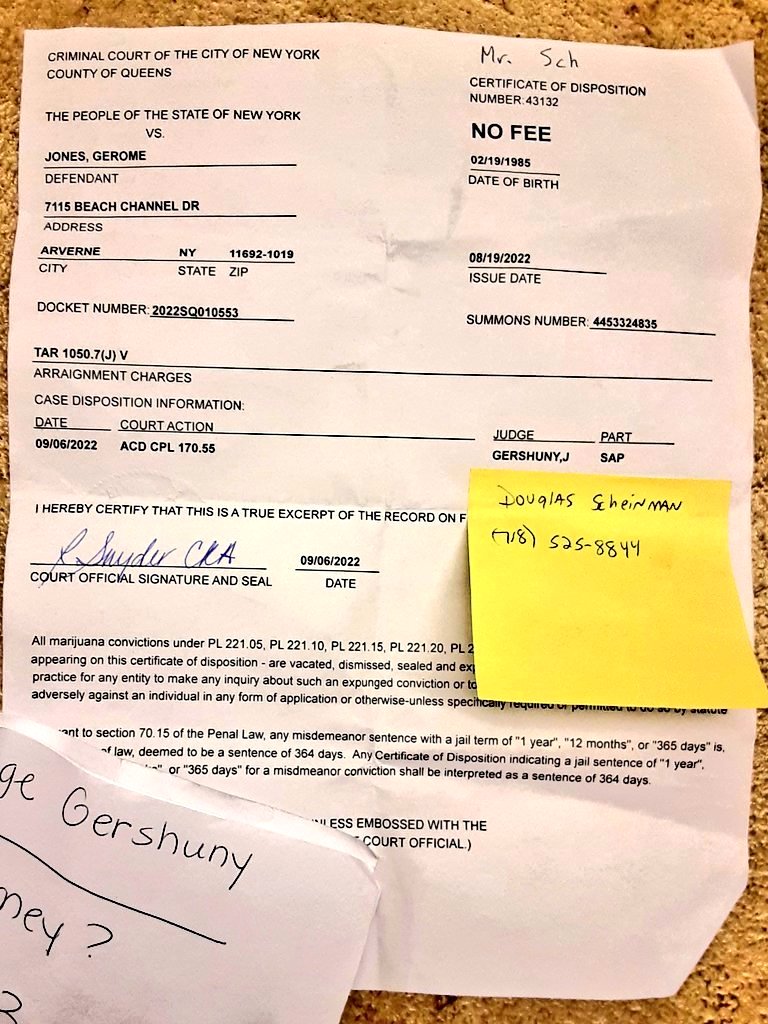 CRIMINAL COURT OF THE CITY OF NEW YORK
COUNTY OF QUEENS
Mr. Sch
CERTIFICATE OF DISPOSITION
NUMBER: 43132
THE PEOPLE OF THE STATE OF NEW YORK
VS.
NO FEE
JONES, GEROME
DEFENDANT
02/19/1985
DATE OF BIRTH
7115 BEACH CHANNEL DR
ADDRESS
ARVERNE NY 11692-1019
CITY STATE ZIP
08/19/2022
ISSUE DATE
DOCKET NUMBER: 2022SQ010553
SUMMONS NUMBER: 4453324835
TAR 1050.7(J) V
ARRAIGNMENT CHARGES
CASE DISPOSITION INFORMATION:
DATE COURT ACTION JUDGE PART
09/06/2022 ACD CPL 170.55 GERSHUNY,J SAP
I HEREBY CERTIFY THAT THIS IS A TRUE EXCERPT OF THE RECORD ON F
R Snyder CRA 09/06/2022
COURT OFFICIAL SIGNATURE AND SEAL DATE
DOUGLAS ScheinMAN
(718) 525-8844
All marijuana convictions under PL 221.05, PL 221.10, PL 221.15, PL 221.20, PL 2
appearing on this certificate of disposition - are vacated, dismissed, sealed and exp
practice for any entity to make any inquiry about such an expunged conviction or to
adversely against an individual in any form of application or otherwise-unless specifically required or permitted to do so by statute
ant to section 70.15 of the Penal Law, any misdemeanor sentence with a jail term of "1 year", "12 months", or "365 days" is,
of law, deemed to be a sentence of 364 days. Any Certificate of Disposition indicating a jail sentence of "1 year",
or "365 days" for a misdmeanor conviction shall be interpreted as a sentence of 364 days.
NLESS EMBOSSED WITH THE
COURT OFFICIAL.)
ge Gershuny
ney?
3